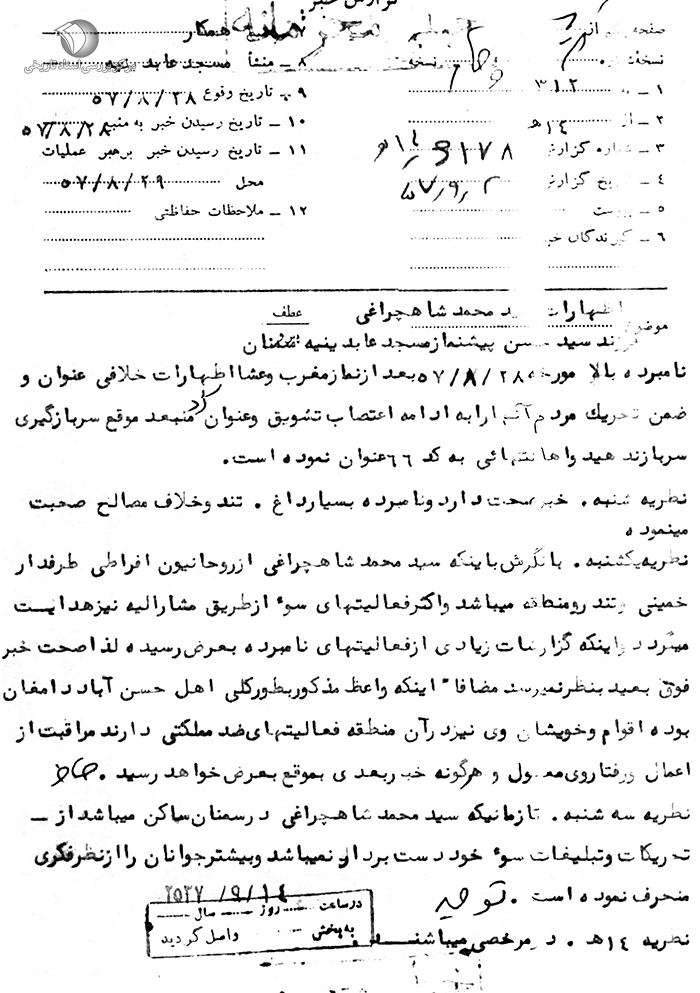 گزارش خبر
خیلی محرمانه
صفحه
۷ - منبع همکار
نسخه شماره نسخه
۸ - منشأ مسجد عابدینیه
۱ - به ۳۱۲
۹ - تاریخ وقوع ۵۷/۸/۲۸
۲ - از ۱۴ هـ
۱۰ - تاریخ رسیدن خبر به منبع ۵۷/۸/۲۸
۳ - شماره گزارش
۱۱ - تاریخ رسیدن خبر برهبر عملیات
۴ - تاریخ گزارش ۵۷/۹/۲
محل ۵۷/۸/۲۹
۵ - پیوست
۱۲ - ملاحظات حفاظتی
۶ - گیرندگان خبر
موضوع اظهارات سید محمد شاهچراغی عطف
فرزند سید حسن پیشنماز مسجد عابدینیه سمنان
نامبرده بالا مورخه ۵۷/۸/۲۸ بعد از نماز مغرب و عشا اظهارات خلافی عنوان و
ضمن تحریك مردم آنها را به ادامه اعتصاب تشویق و عنوان کرد منبعد موقع سربازگیری
سرباز ندهید و اهانتهائی به کد ۶۶ عنوان نموده است.
نظریه شنبه. خبر صحت دارد و نامبرده بسیار داغ . تند و خلاف مصالح صحبت
مینموده
نظریه یکشنبه. با نگرش باینکه سید محمد شاهچراغی از روحانیون افراطی طرفدار
خمینی و تندرو منطقه میباشد و اکثر فعالیتهای سوء از طریق مشارالیه نیز هدایت
میگردد و اینکه گزارشات زیادی از فعالیتهای نامبرده بعرض رسیده لذا صحت خبر
فوق بعید بنظر نمیرسد مضافا" اینکه واعظ مذکور بطور کلی اهل حسن آباد دامغان
بوده اقوام و خویشان وی نیز در آن منطقه فعالیتهای ضد مملکتی دارند مراقبت از
اعمال و رفتار وی معمول و هرگونه خبر بعدی بموقع بعرض خواهد رسید .
نظریه سه شنبه. تا زمانیکه سید محمد شاهچراغی در سمنان ساکن میباشد از -
تحریکات و تبلیغات سوء خود دست بردار نمیباشد و بیشتر جوانان را از نظر فکری
منحرف نموده است .
۲۵۳۷/۹/۱۴
در ساعت روز سال
به بخش واصل گردید
نظریه ۱۴ هـ . در مرخصی میباشند